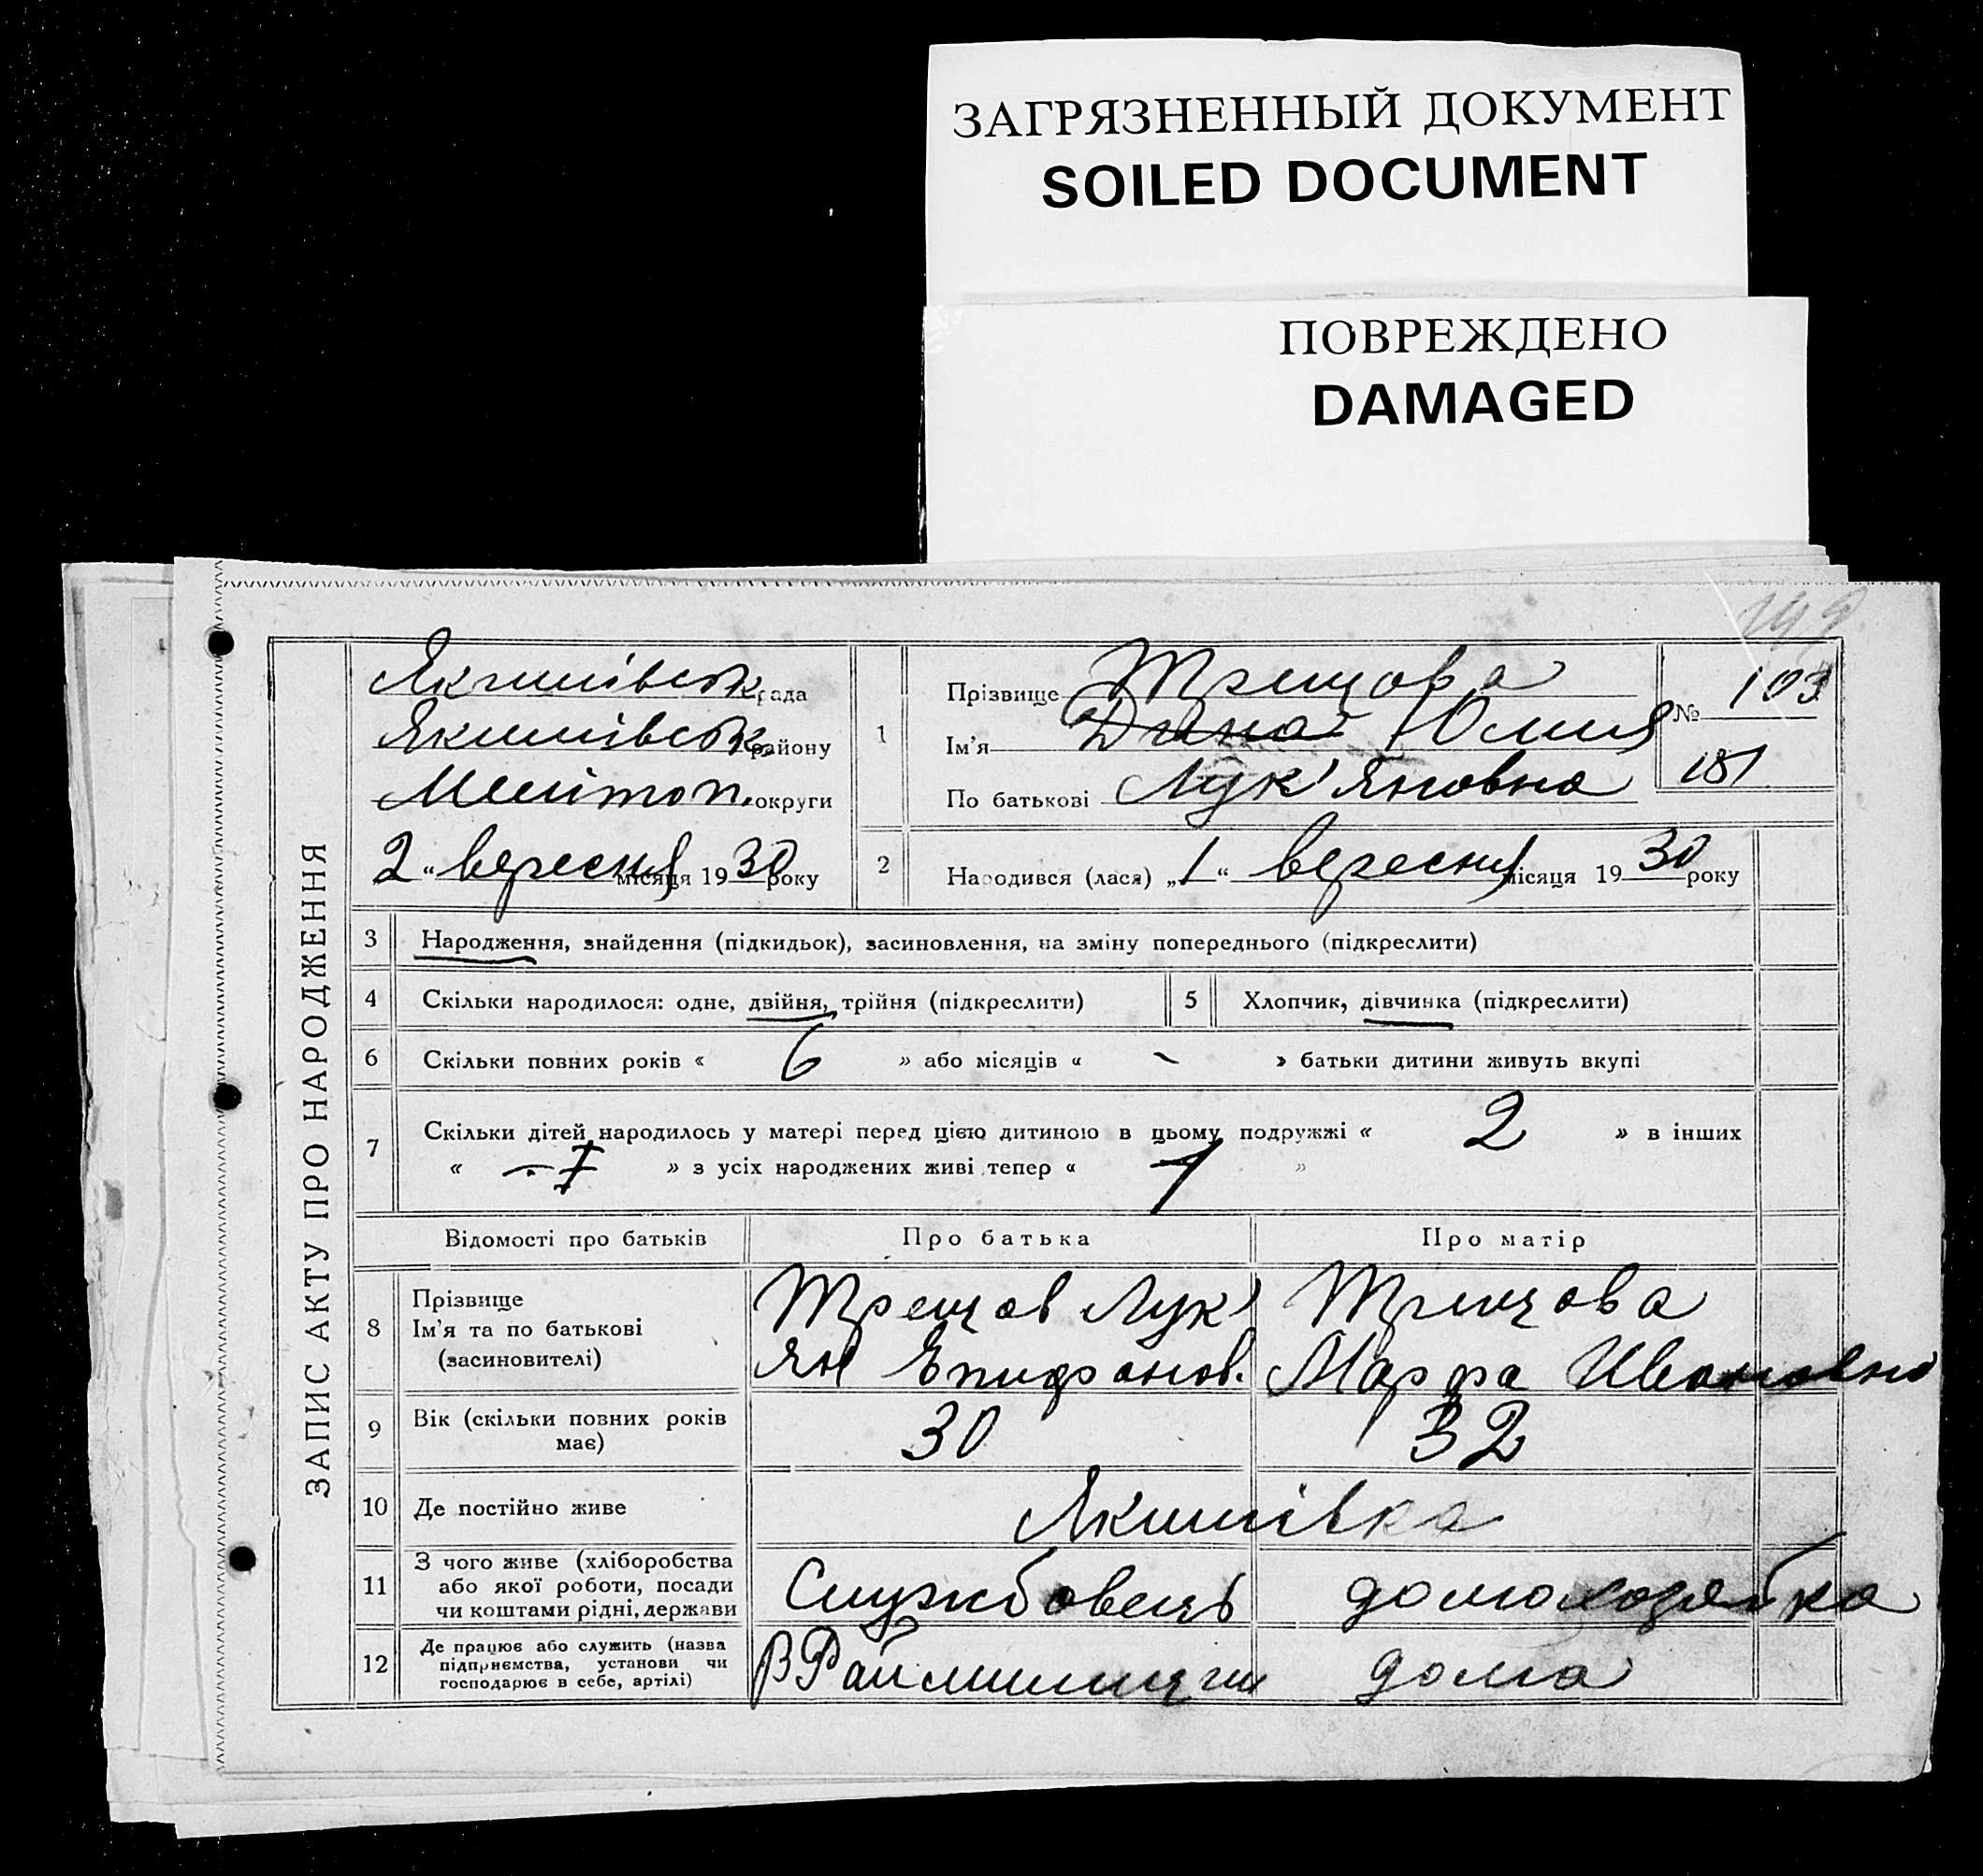 ЗАГРЯЗНЕННЫЙ ДОКУМЕНТ
SOILED DOCUMENT
ПОВРЕЖДЕНО
DAMAGED
ЗАПИС АКТУ ПРО НАРОДЖЕННЯ
Якимівськ. рада
Якимівськ. району
Меліітоп. округи
2 “ вересня місяця 1930 року
1 Прізвище Трещова
Ім'я Дина Юлия
По батькові Лук'яновна
№ 103
181
2 Народився (лася) „1“ вересня місяця 1930 року
3 Народження, знайдення (підкидьок), засиновлення, на зміну попереднього (підкреслити)
4 Скільки народилося: одне, двійня, трійня (підкреслити) 5 Хлопчик, дівчинка (підкреслити)
6 Скільки повних років « 6 » або місяців « – » батьки дитини живуть вкупі
7 Скільки дітей народилось у матері перед цією дитиною в цьому подружжі « 2 » в інших
« » з усіх народжених живі тепер « 1 »
Відомості про батьків Про батька Про матір
8 Прізвище
Ім'я та по батькові
(засиновителі)
Трещов Лук'
ян Епифанов.
Трещова
Марфа Ивановна
9 Вік (скільки повних років
має)
30 32
10 Де постійно живе Якимівка
11 З чого живе (хліборобства
або якої роботи, посади
чи коштами рідні, держави
Службовець домохозяйка
12 Де працює або служить (назва
підприємства, установи чи
господарює в себе, артілі)
В Райміліции дома